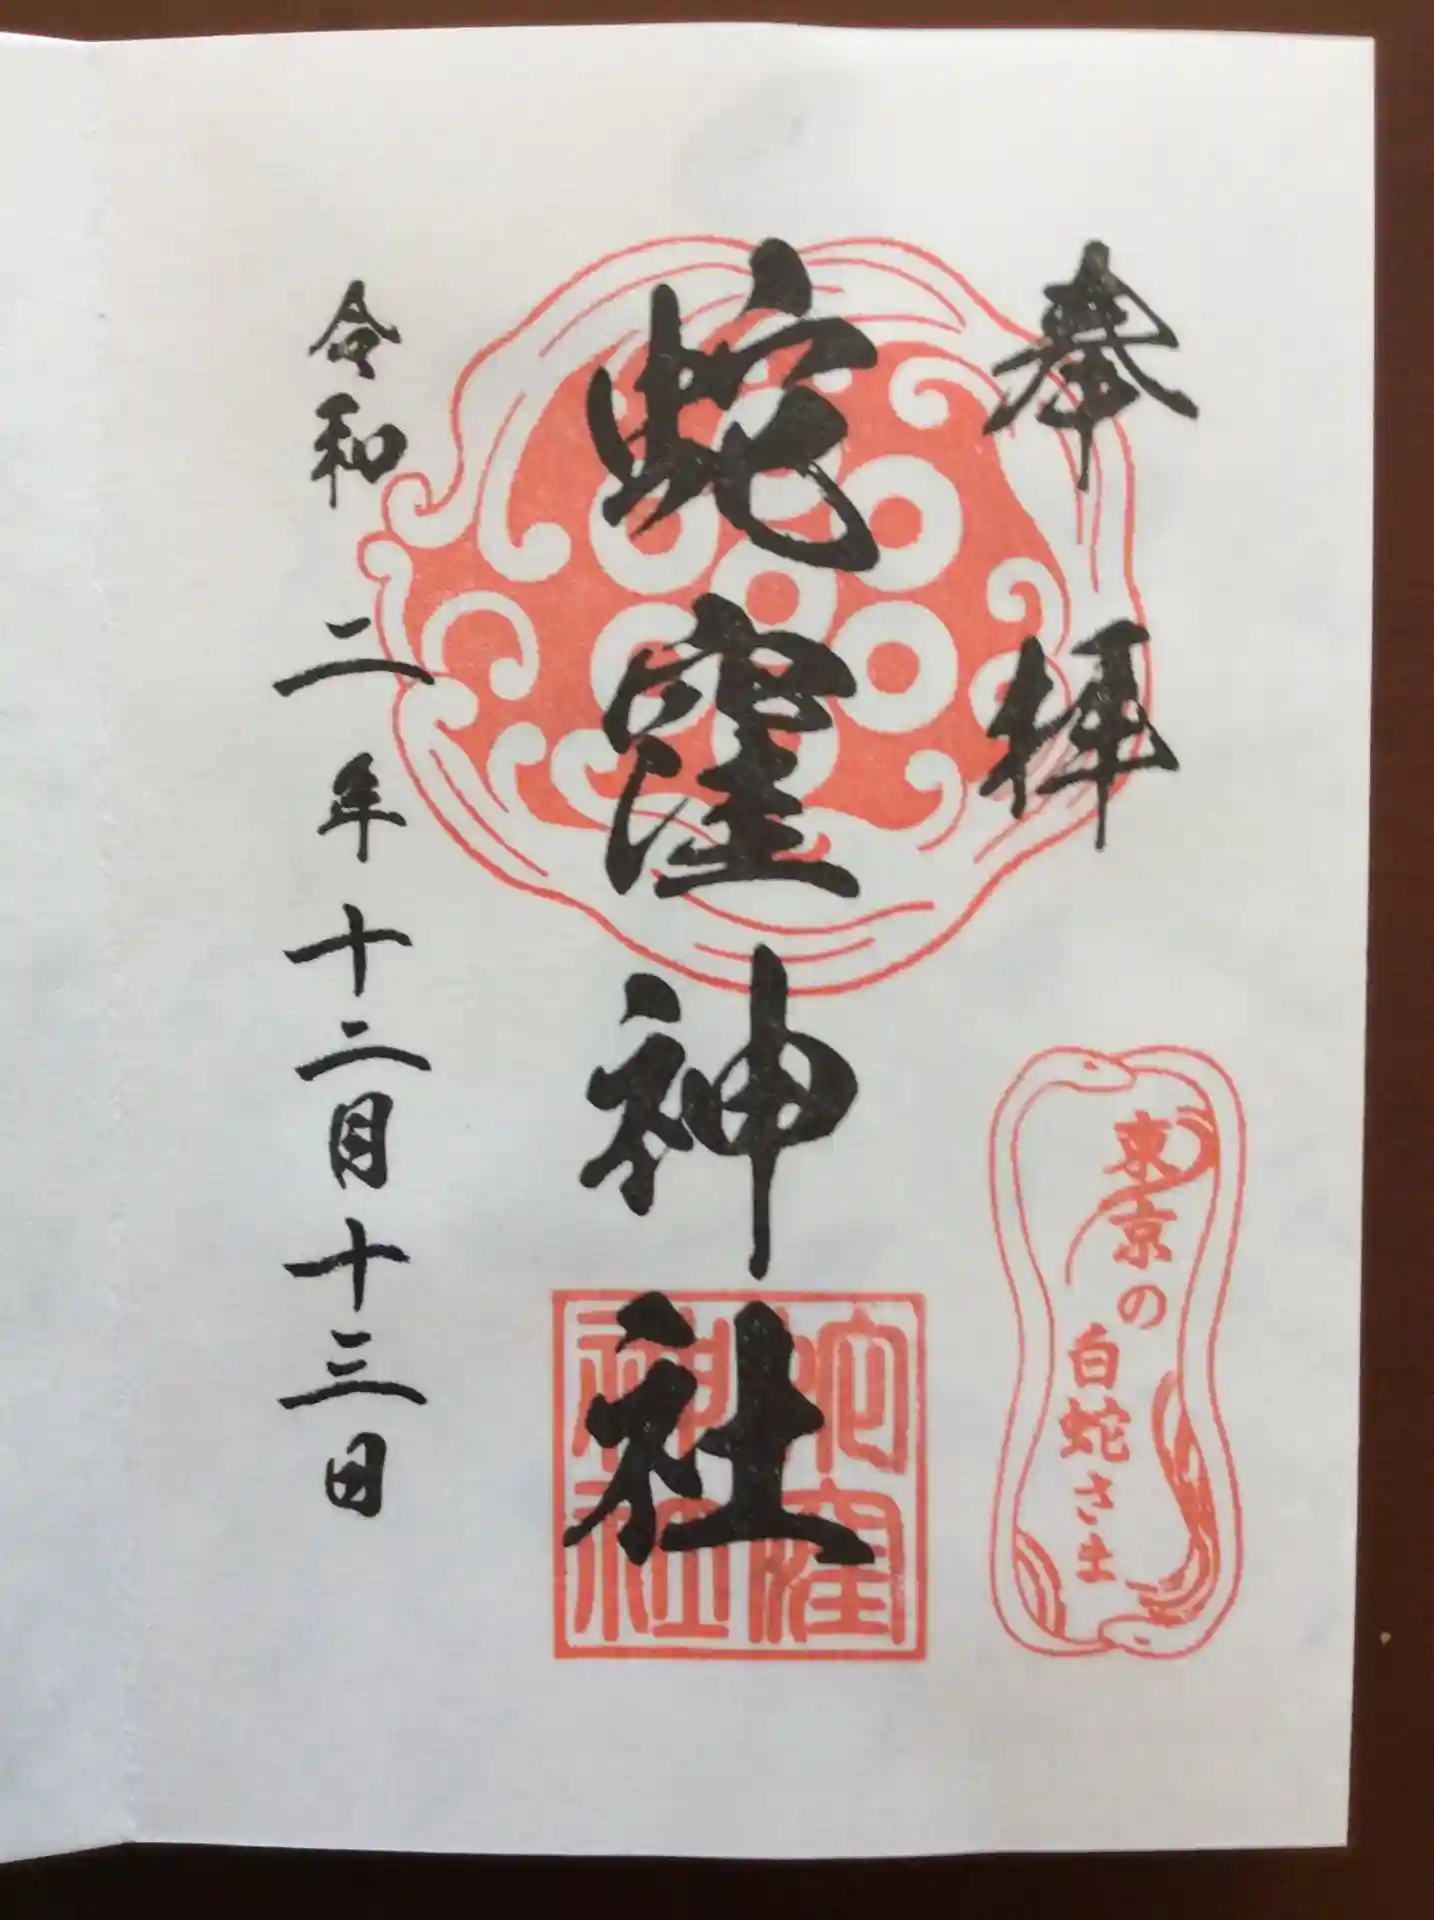 奉拝
東京の
白蛇さま
蛇窪神社
蛇窪
神社
令和二年十二月十三日